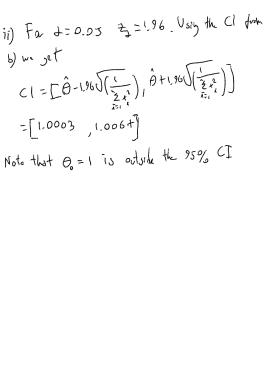 ii) For α=0.05 z_α=1.96. Using the CI from
b) we get
CI = [θ̂-1.96√(1/∑_{i=1} x_i²), θ̂+1.96√(1/∑_{i=1} x_i²)]
=[1.0003, 1.0067]
Note that θ₀=1 is outside the 95% CI